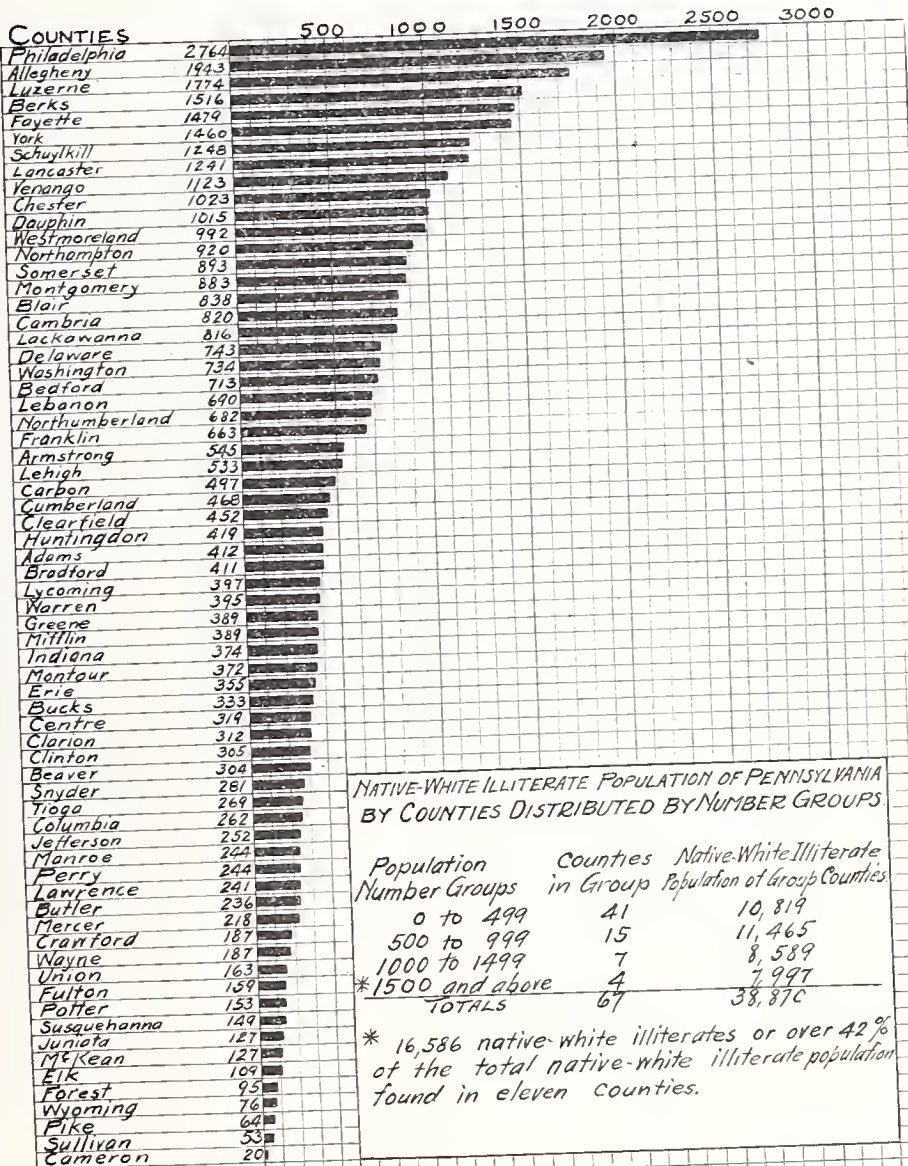 500 1000 1500 2000 2500 3000
COUNTIES
Philadelphia 2764
Allegheny 1943
Luzerne 1774
Berks 1516
Fayette 1479
York 1460
Schuylkill 1248
Lancaster 1241
Venango 1123
Chester 1023
Dauphin 1015
Westmoreland 992
Northampton 920
Somerset 893
Montgomery 883
Blair 838
Cambria 820
Lackawanna 816
Delaware 743
Washington 734
Bedford 713
Lebanon 690
Northumberland 682
Franklin 663
Armstrong 545
Lehigh 533
Carbon 497
Cumberland 468
Clearfield 452
Huntingdon 419
Adams 412
Bradford 411
Lycoming 397
Warren 395
Greene 389
Mifflin 389
Indiana 374
Montour 372
Erie 355
Bucks 333
Centre 319
Clarion 312
Clinton 305
Beaver 304
Snyder 281
Tioga 269
Columbia 262
Jefferson 252
Monroe 244
Perry 244
Lawrence 241
Butler 236
Mercer 218
Crawford 187
Wayne 187
Union 163
Fulton 159
Potter 153
Susquehanna 149
Juniata 127
McKean 127
Elk 109
Forest 95
Wyoming 76
Pike 64
Sullivan 53
Cameron 20
NATIVE-WHITE ILLITERATE POPULATION OF PENNSYLVANIA
BY COUNTIES DISTRIBUTED BY NUMBER GROUPS.
Population Counties Native-White Illiterate
Number Groups in Group Population of Group Counties.
0 to 499 41 10,819
500 to 999 15 11,465
1000 to 1499 7 8,589
*1500 and above 4 7,997
TOTALS 67 38,870
* 16,586 native-white illiterates or over 42%
of the total native-white illiterate population
found in eleven counties.